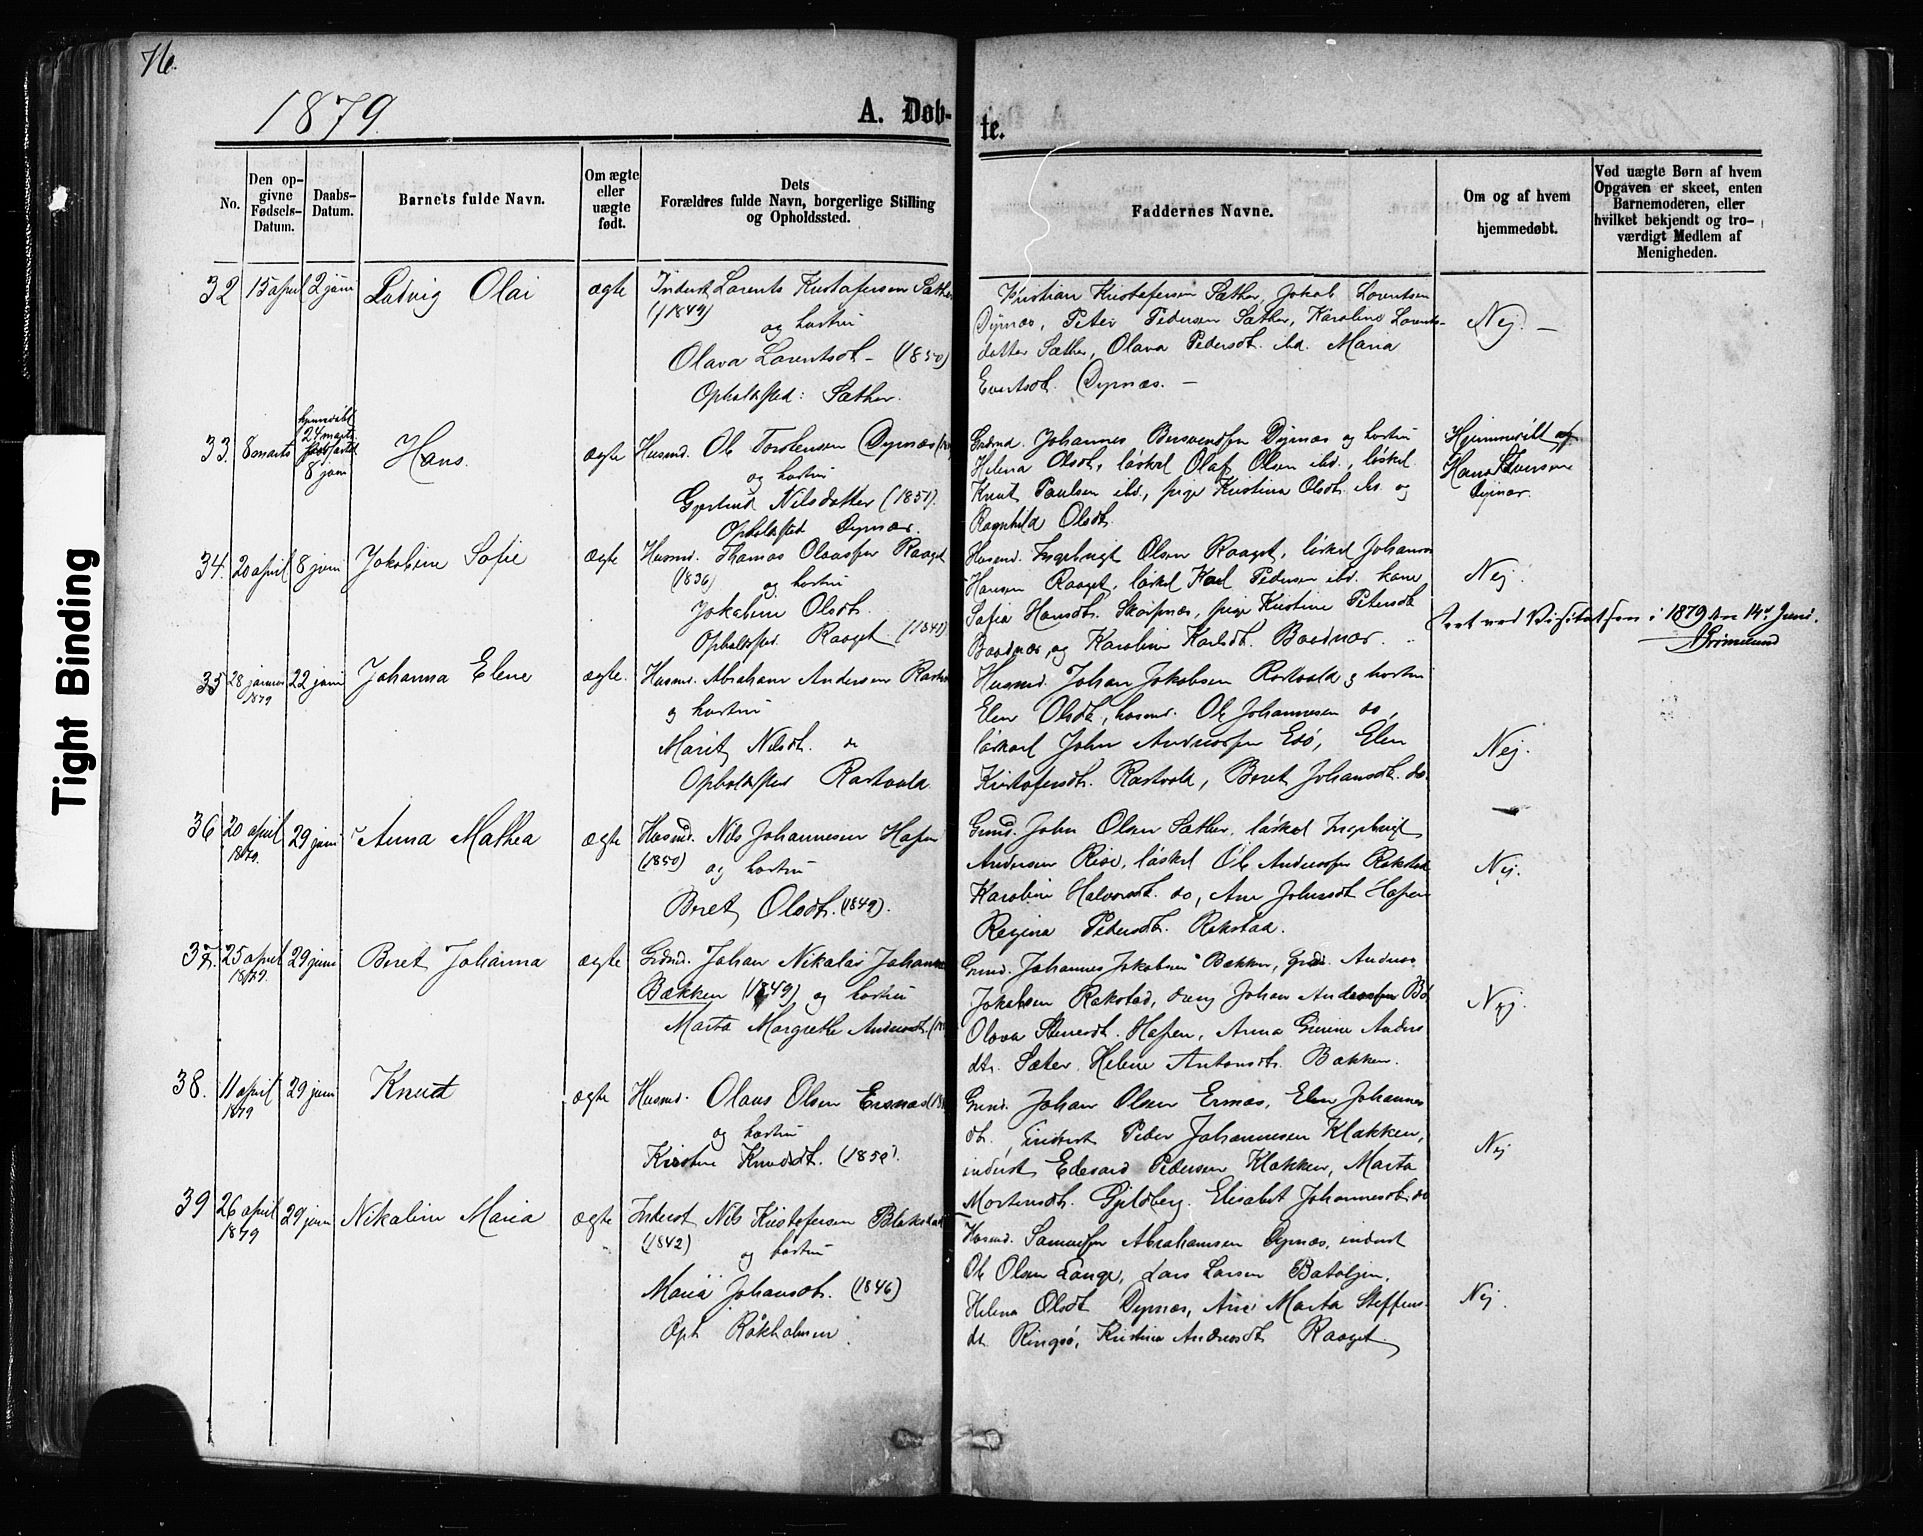 76.
1879.
A. Døb-
te.
No.
Den op-
givne
Fødsels-
Datum.
Daabs-
Datum.
Barnets fulde Navn.
Om ægte
eller
uægte
født.
Dets
Forældres fulde Navn, borgerlige Stilling
og Opholdssted.
Faddernes Navne.
Om og af hvem
hjemmedøbt.
Ved uægte Børn af hvem
Opgaven er skeet, enten
Barnemoderen, eller
hvilket bekjendt og tro-
værdigt Medlem af
Menigheden.
32 15 april 2 juni Ludvig Olai ægte Inderst Lorents Kristofersen Sæther
(1849)
og hustru
Olava Lorentsdt. (1850)
Opholdssted: Sæther.
Kristian Kristofersen Sæther, Jakob Lorentsen
Dyrnæs, Peter Pedersen Sæther, Karoline Lorents-
datter Sæther, Olava Pedersdt. ibd. Maria
Evertsdt. Dyrnæs. –
Nej. –
33. 8 marts hjemmedøbt
24 marts
8 juni
Hans. ægte Husmd. Ole Torstensen Dyrnæs
og hustru
Gjertrud Nilsdatter (1851).
Opholdssted Dyrnæs
Grdmd. Johannes Dyrnæs og hustru
Helena Olsdt., løskel Olaf Olsen ibd., løskel.
Knut Paulsen ibd., pige Kristina Olsdt. ibd. og
Ragnhild Olsdt.
Hjemmedøbt af
Hans Iversen
Dyrnæs
34. 20 april 8 juni Jakobine Sofie ægte Husmd. Thomas Olaussen Raaget
(1836)
og hustru
Jokabine Olsdt.
Opholdssted Raaget (1841)
Husmd. Ingebrigt Olsen Raaget, løskel Johannes
Hansen Raaget, løskel Karl Pedersen ibd. kone
Sofia Hansdt. Skarpnæs, pige Kristine Petersdt.
Baadnæs og Karoline Karlsdt. Baadnæs.
Nej.
Seet ved Visitatsen i 1879 den 14de Juni.
35 28 januar
1879
22 juni Johanna Elene ægte. Husmd. Abraham Andersen Rastvold
og hustru
Marit Nilsdt. do
Opholdssted Rastvold
Husmd. Johan Jakobsen Rastvold og hustru
Elen Olsdt., husmd. Ole Johannesen do,
løskarl John Andersen Edø, Elen
Kristofersdt. Rastvold, Beret Johansdt. do.
Nej.
36 20 april
1879.
29 juni Anna Mathea ægte Husmd. Nils Johannesen Hafen
(1850)
og hustru
Beret Olsdt. (1849).
Grmd. John Olsen Sæther, løskel Ingebrigt
Andersen Rise, løskel Ole Andersen Rokstad
Karoline Halvorsdt. do, Ane Johnsdt. Hafen
Regina Pedersdt. Rokstad.
Nej.
37. 25 april
1879.
29 juni Beret Johanna ægte Grdmd. Johan Nikolai
Bækken (1849) og hustru
Marta Margrethe Andersdt.
Grmd. Johannes Jakobsen Bækken, grmd. Anders
Jakobsen Rokstad, dreng Johan Andersen
Olava Hafen, Anna Gurine Anders
dt. Sæter, Helene Antonsdt. Bækken.
Nej.
38. 11 april
1879
29 juni Knud ægte Husmd. Olaus Olsen Ersnæs
og hustru
Kirstine Knudsdt. (1850).
Grmd. Johan Olsen Ersnæs, Elen Johannes
dt. inderst Peder Johannesen Klakken,
inderst Edevard Pedersen Klakken, Marta
Mortensdt. Gjeldberg, Elisabet Johannesdt. do
Nej
39 26 april
1879
29 juni Nikoline Maria ægte Inderst Nils Kristofersen
(1842)
og hustru
Maria Johansdt. (1846)
Oph Røkholmen.
Husmd. Samuel Abrahamsen Dyrnæs, inderst
Ole Olsen Lange, Lars Larsen Bataljen,
Helena Olsdt Dyrnæs, Ane Marta Steffens-
dt Ringsø, Kristina Andersdt Raaget
Nej.
Tight Binding